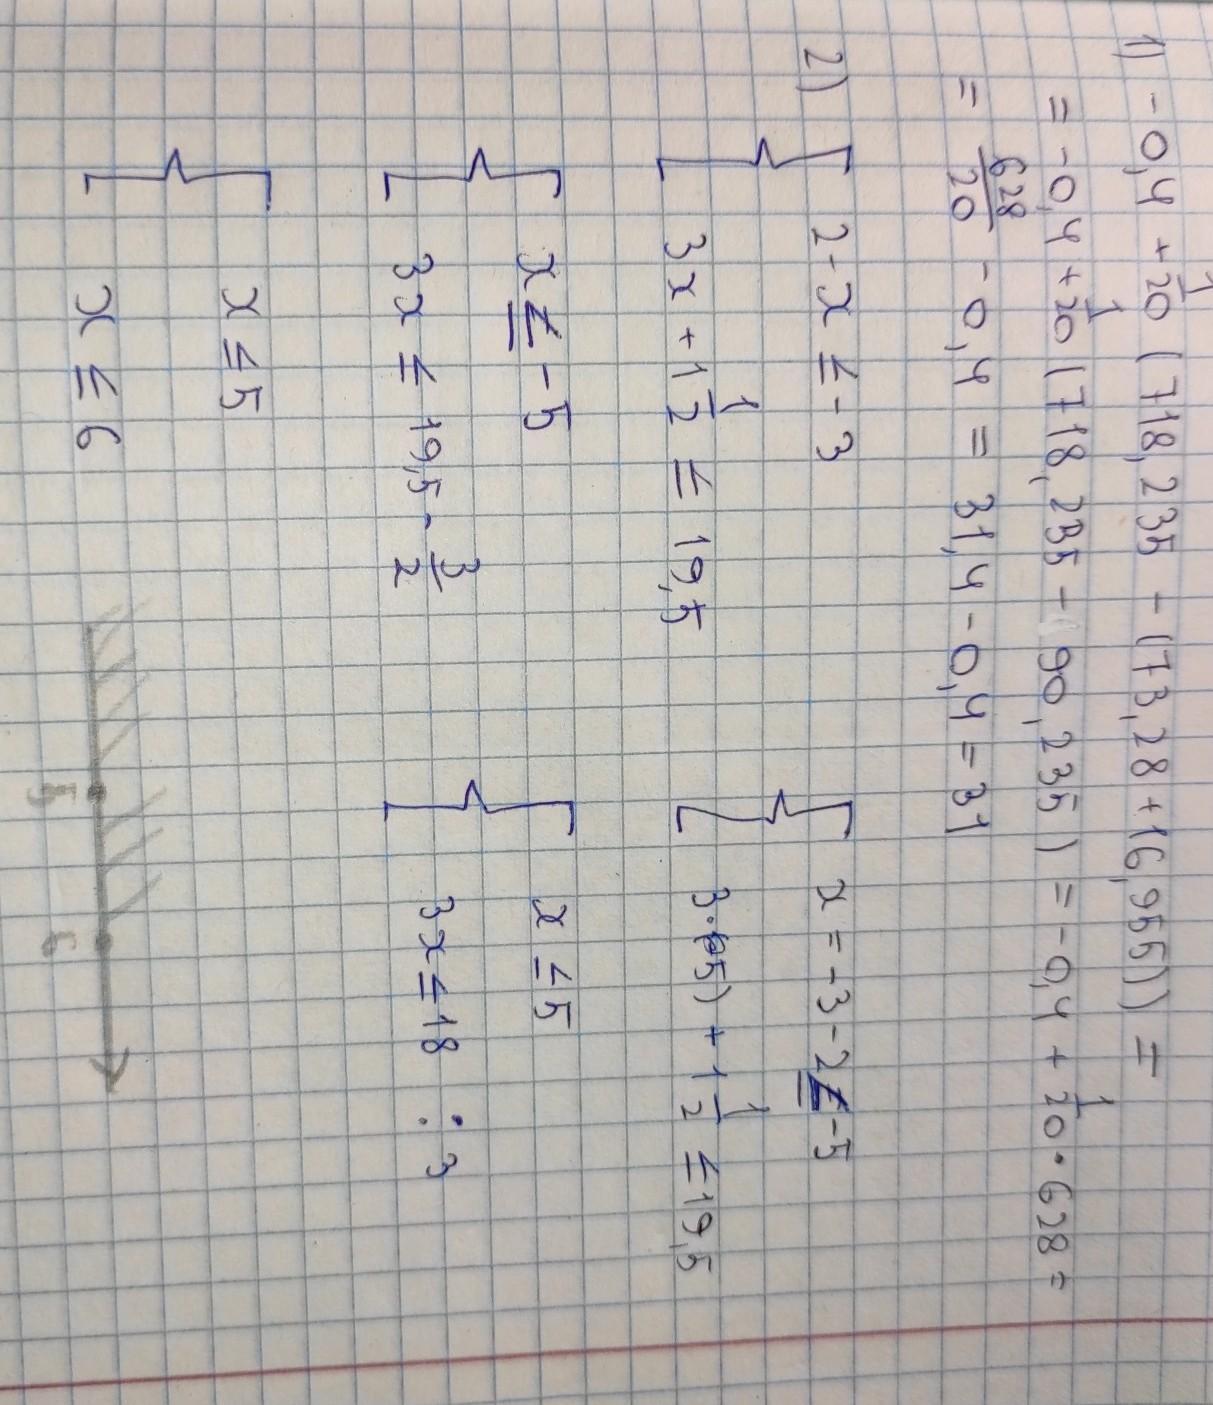 1) -0,4 + 1/20 (718,235 - (73,28 + 16,955)) =
= -0,4 + 1/20 (718,235 - 90,235) = -0,4 + 1/20 · 628 =
= 628/20 - 0,4 = 31,4 - 0,4 = 31
2) 2 - x ≤ -3
3x + 1 1/2 ≤ 19,5
x = -3 - 2 ≤ -5
3·(5) + 1 1/2 ≤ 19,5
x ≤ -5
3x ≤ 19,5 - 3/2
x ≤ 5
3x ≤ 18 : 3
x ≤ 5
x ≤ 6
5 6